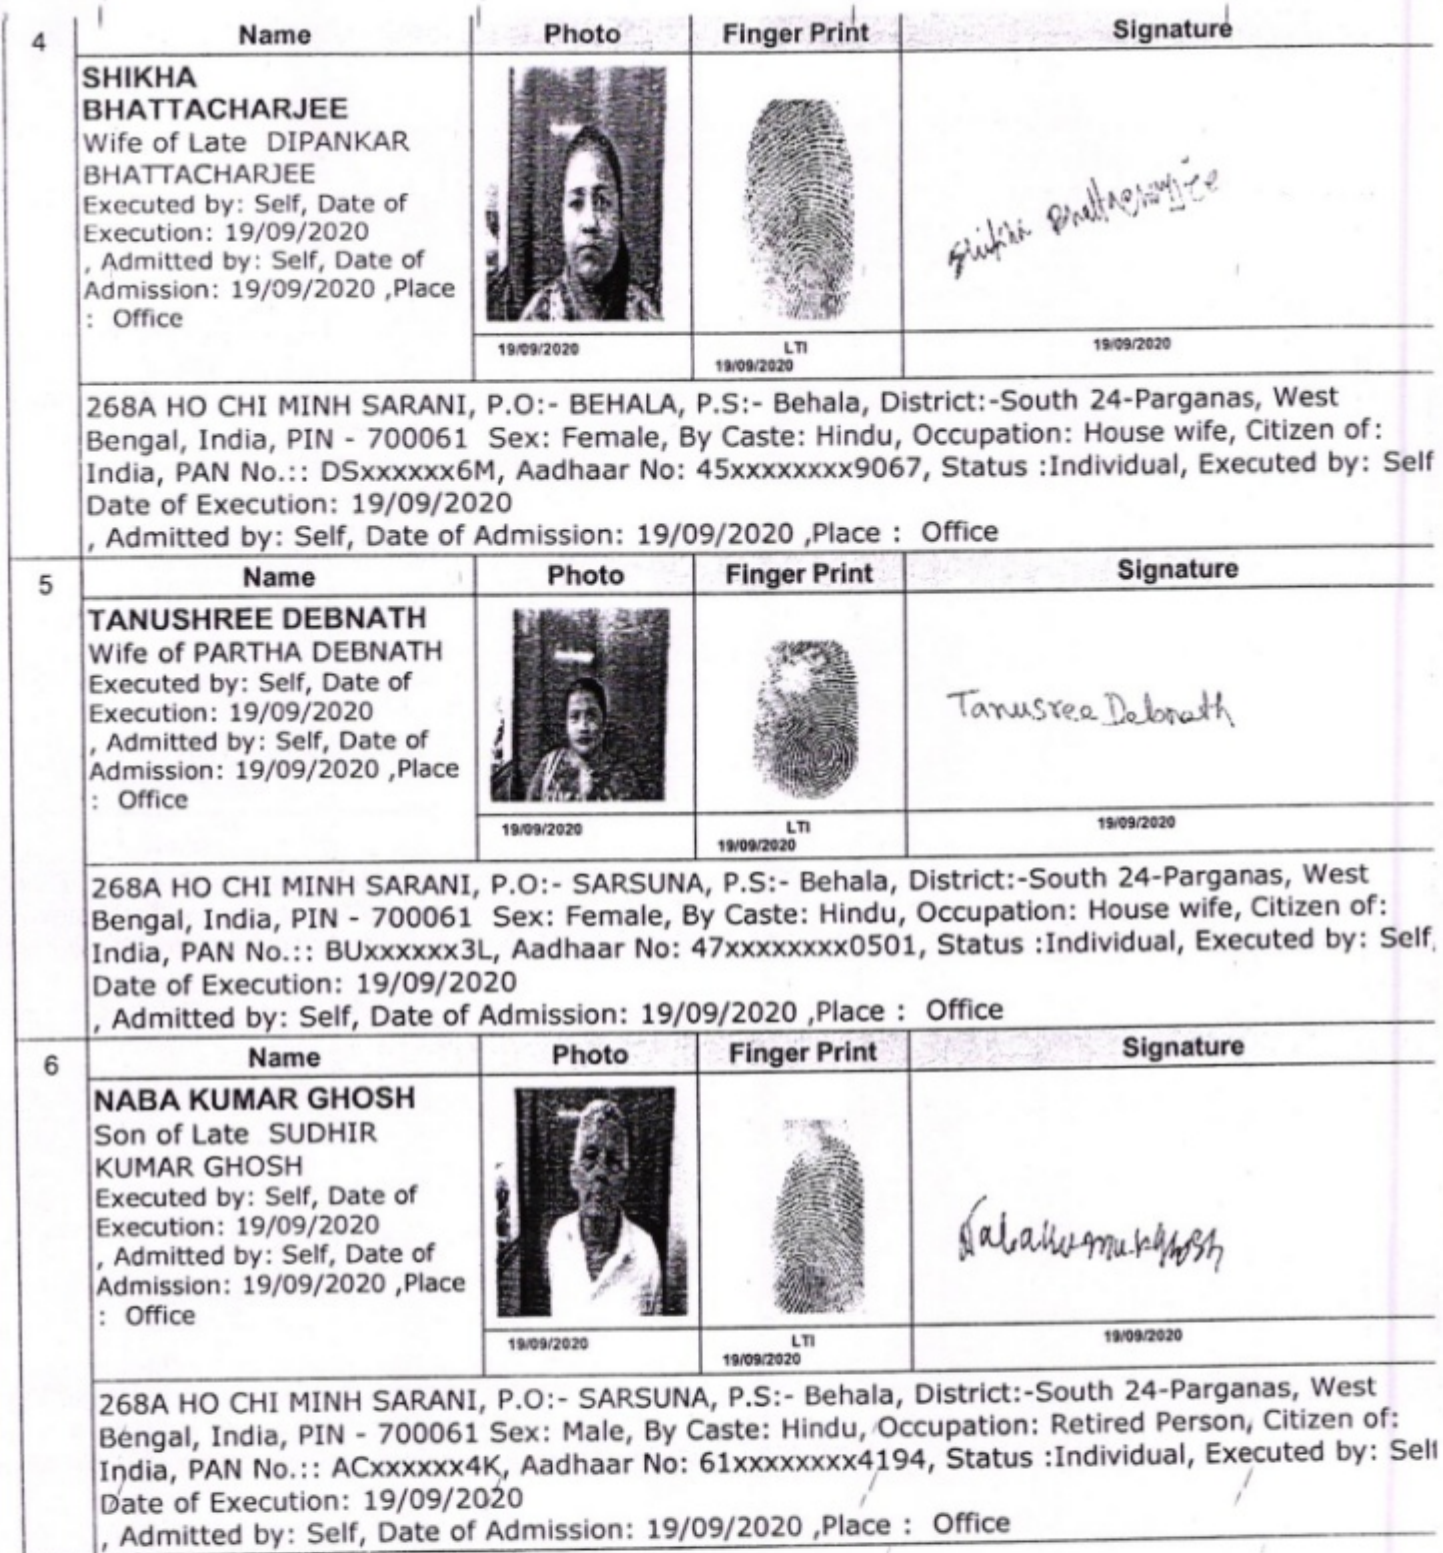 4
Name Photo Finger Print Signature
SHIKHA
BHATTACHARJEE
Wife of Late DIPANKAR
BHATTACHARJEE
Executed by: Self, Date of
Execution: 19/09/2020
, Admitted by: Self, Date of
Admission: 19/09/2020 ,Place
: Office
Shikha Bhattacharjee
19/09/2020 LTI 19/09/2020
19/09/2020
268A HO CHI MINH SARANI, P.O:- BEHALA, P.S:- Behala, District:-South 24-Parganas, West
Bengal, India, PIN - 700061 Sex: Female, By Caste: Hindu, Occupation: House wife, Citizen of:
India, PAN No.:: DSxxxxxx6M, Aadhaar No: 45xxxxxxxx9067, Status :Individual, Executed by: Self
Date of Execution: 19/09/2020
, Admitted by: Self, Date of Admission: 19/09/2020 ,Place : Office
5
Name Photo Finger Print Signature
TANUSHREE DEBNATH
Wife of PARTHA DEBNATH
Executed by: Self, Date of
Execution: 19/09/2020
, Admitted by: Self, Date of
Admission: 19/09/2020 ,Place
: Office
Tanusree Debnath
19/09/2020 LTI 19/09/2020
19/09/2020
268A HO CHI MINH SARANI, P.O:- SARSUNA, P.S:- Behala, District:-South 24-Parganas, West
Bengal, India, PIN - 700061 Sex: Female, By Caste: Hindu, Occupation: House wife, Citizen of:
India, PAN No.:: BUxxxxxx3L, Aadhaar No: 47xxxxxxxx0501, Status :Individual, Executed by: Self,
Date of Execution: 19/09/2020
, Admitted by: Self, Date of Admission: 19/09/2020 ,Place : Office
6
Name Photo Finger Print Signature
NABA KUMAR GHOSH
Son of Late SUDHIR
KUMAR GHOSH
Executed by: Self, Date of
Execution: 19/09/2020
, Admitted by: Self, Date of
Admission: 19/09/2020 ,Place
: Office
Naba Kumar Ghosh
19/09/2020 LTI 19/09/2020
19/09/2020
268A HO CHI MINH SARANI, P.O:- SARSUNA, P.S:- Behala, District:-South 24-Parganas, West
Bengal, India, PIN - 700061 Sex: Male, By Caste: Hindu, Occupation: Retired Person, Citizen of:
India, PAN No.:: ACxxxxxx4K, Aadhaar No: 61xxxxxxxx4194, Status :Individual, Executed by: Self
Date of Execution: 19/09/2020
, Admitted by: Self, Date of Admission: 19/09/2020 ,Place : Office